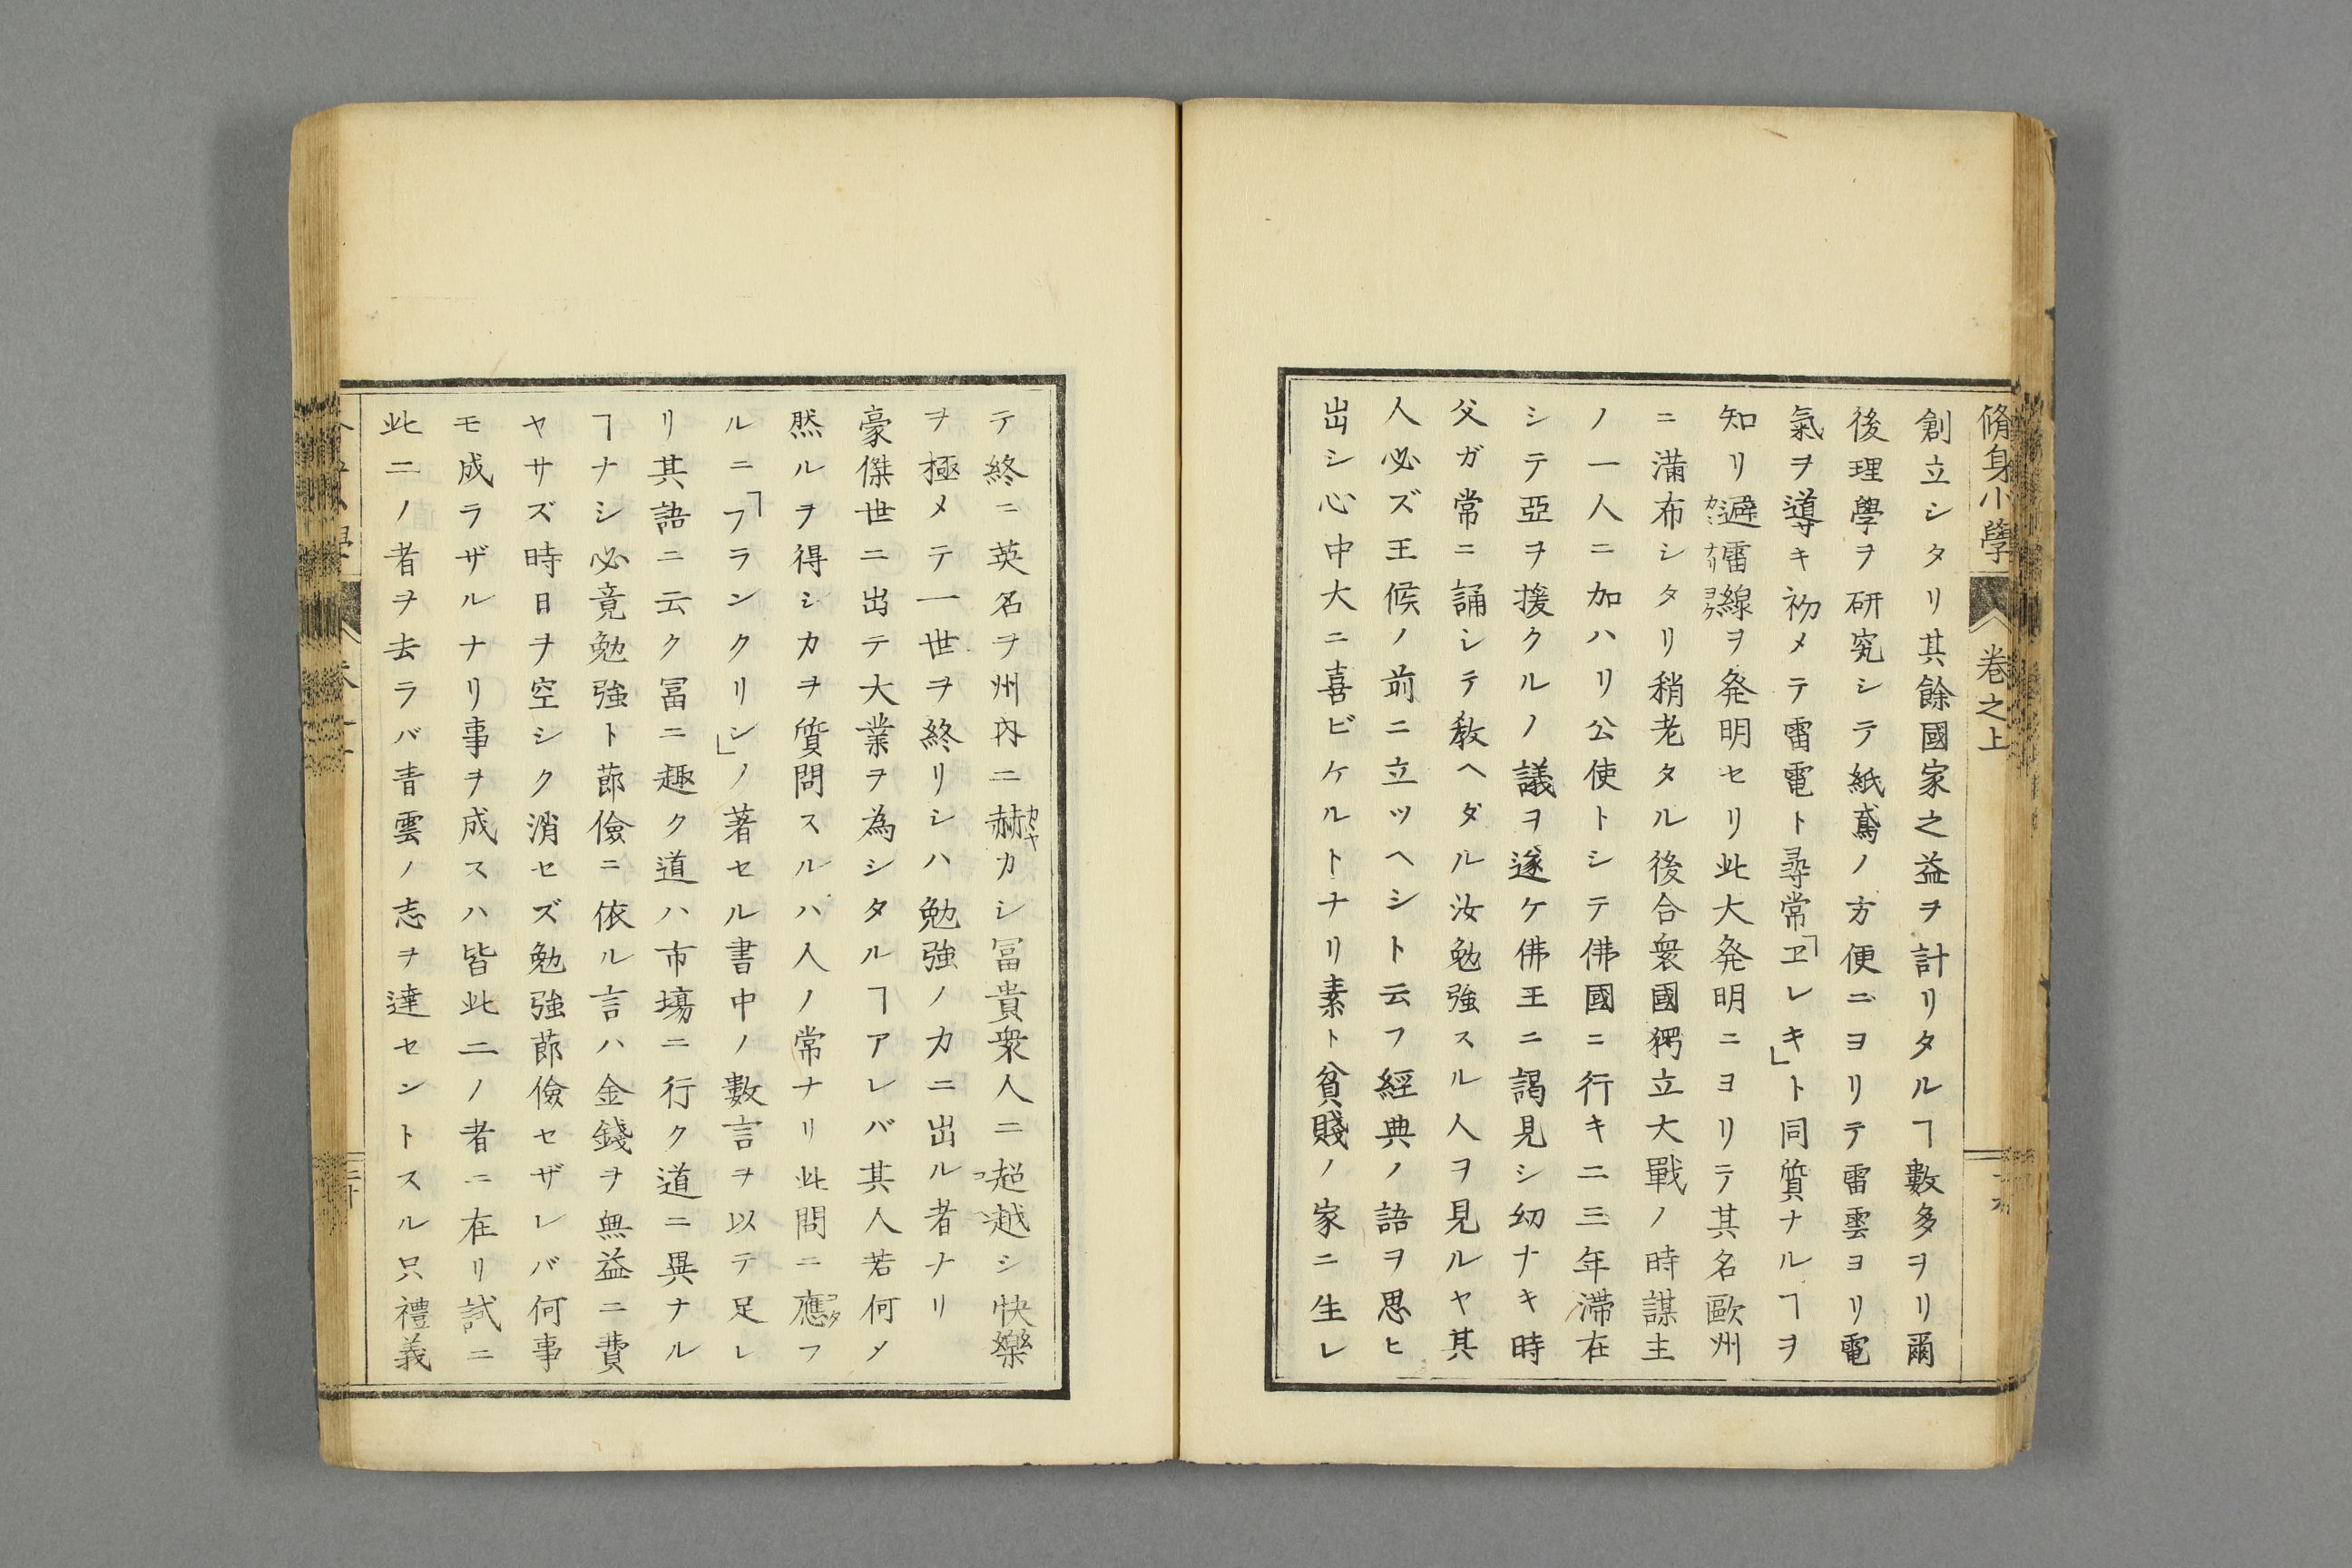 脩身小學
卷之上
創立シタリ其餘國家之益ヲ計リタルヿ數多ヲリ爾
後理學ヲ研究シテ紙鳶ノ方便ニヨリテ雷雲ヨリ電
氣ヲ導キ初メテ雷電ト尋常「ヱレキ」ト同質ナルヿヲ
知リ避雷線ヲ発明セリ此大発明ニヨリテ其名歐州
ニ滿布シタリ稍老タル後合衆國獨立大戰ノ時謀主
ノ一人ニ加ハリ公使トシテ佛國ニ行キ二三年滞在
シテ亞ヲ援クルノ議ヲ遂ケ佛王ニ謁見シ幼ナキ時
父ガ常ニ誦シテ教ヘダル汝勉強スル人ヲ見ルヤ其
人必ズ王候ノ前ニ立ツヘシト云フ經典ノ語ヲ思ヒ
出シ心中大ニ喜ビケルトナリ素ト貧賤ノ家ニ生レ
テ終ニ英名ヲ州内ニ赫カシ冨貴衆人ニ超越シ快樂
ヲ極メテ一世ヲ終リシハ勉強ノ力ニ出ル者ナリ
豪傑世ニ出テ大業ヲ為シタルヿアレバ其人若何メ
然ルヲ得シカヲ質問スルハ人ノ常ナリ此問ニ應フ
ルニ「フランクリン」ノ著セル書中ノ數言ヲ以テ足レ
リ其語ニ云ク冨ニ趣ク道ハ市塲ニ行ク道ニ異ナル
ヿナシ必竟勉強ト莭儉ニ依ル言ハ金錢ヲ無益ニ費
ヤサズ時日ヲ空シク消セズ勉強莭儉セザレバ何事
モ成ラザルナリ事ヲ成スハ皆此二ノ者ニ在リ試ニ
此二ノ者ヲ去ラバ青雲ノ志ヲ達セントスル只禮義